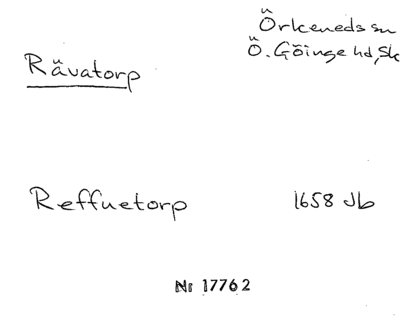 Örkeneds sn
Ö. Göinge hd, Sk
Rävatorp
Reffuetorp 1658 Jb
Nr 17762